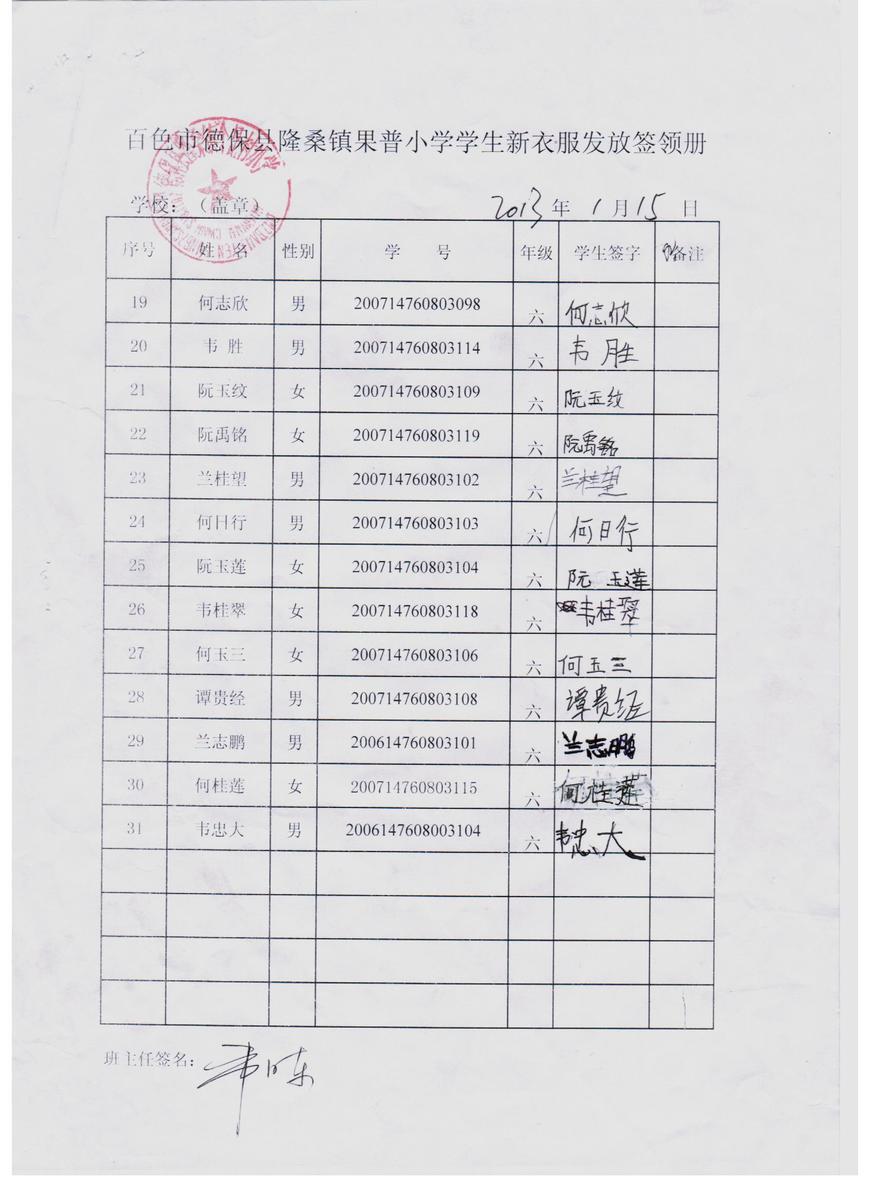 百色市德保县隆桑镇果普小学学生新衣服发放签领册
学校：（盖章） 2013 年 1 月 15 日
序号 姓 名 性别 学 号 年级 学生签字 备注
19 何志欣 男 200714760803098 六 何志欣
20 韦 胜 男 200714760803114 六 韦 胜
21 阮玉纹 女 200714760803109 六 阮玉纹
22 阮禹铭 女 200714760803119 六 阮禹铭
23 兰桂望 男 200714760803102 六 兰桂望
24 何日行 男 200714760803103 六 何日行
25 阮玉莲 女 200714760803104 六 阮 玉莲
26 韦桂翠 女 200714760803118 六 韦桂翠
27 何玉三 女 200714760803106 六 何玉三
28 谭贵经 男 200714760803108 六 谭贵经
29 兰志鹏 男 200614760803101 六 兰志鹏
30 何桂莲 女 200714760803115 六 何桂莲
31 韦忠大 男 2006147608003104 六 韦忠大
班主任签名：